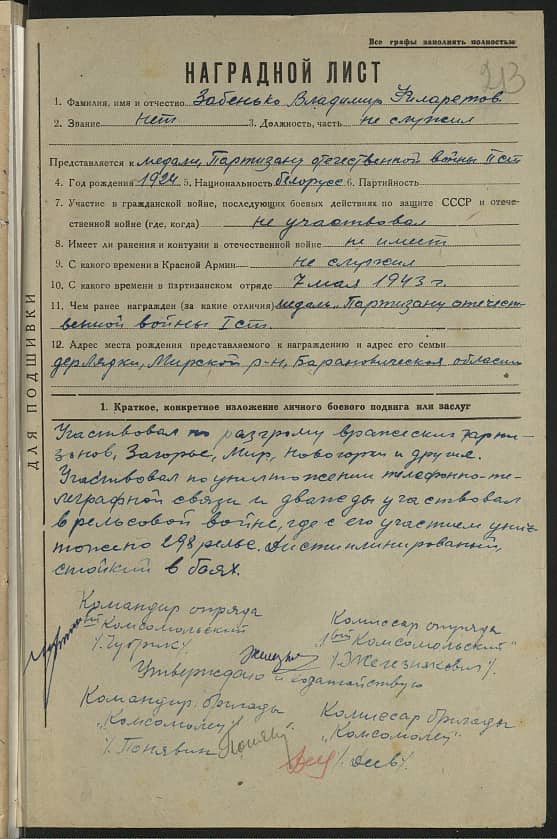 Все графы заполнять полностью
213
НАГРАДНОЙ ЛИСТ
1. Фамилия, имя и отчество Забенько Владимир Филаретов.
2. Звание нет 3. Должность, часть не служил
Представляется к медали, Партизану отечественной войны II ст
4. Год рождения 1924 5. Национальность белорусс 6. Партийность
7. Участие в гражданской войне, последующих боевых действиях по защите СССР и отече-
ственной войне (где, когда) не участвовал
8. Имеет ли ранения и контузии в отечественной войне не имеет
9. С какого времени в Красной Армии не служил
10. С какого времени в партизанском отряде 7 мая 1943 г.
11. Чем ранее награжден (за какие отличия) медаль „Партизану отечест-
венной войны I ст.
12. Адрес места рождения представляемого к награждению и адрес его семьи
дер Лядки, Мирской р-н, Барановической области
ДЛЯ ПОДШИВКИ
1. Краткое, конкретное изложение личного боевого подвига или заслуг
Участвовал по разгрому вражеских гарни-
зонов, Загорье, Мир, и другие.
Участвовал по уничтожении телефонно-те-
леграфной связи и дважды участвовал
в рельсовой войне, где с его участием унич-
тожено 298 рельс. Дисциплинированый,
стойкий в боях.
Командир отряда
Комсомольский
/Чубрик/
Комиссар отряда
Комсомольский"
/Железнякович/.
Утверждаю и ходатайствую
Командир бригады
„Комсомолец"
/Понявин
Комиссар бригады
„Комсомолец"